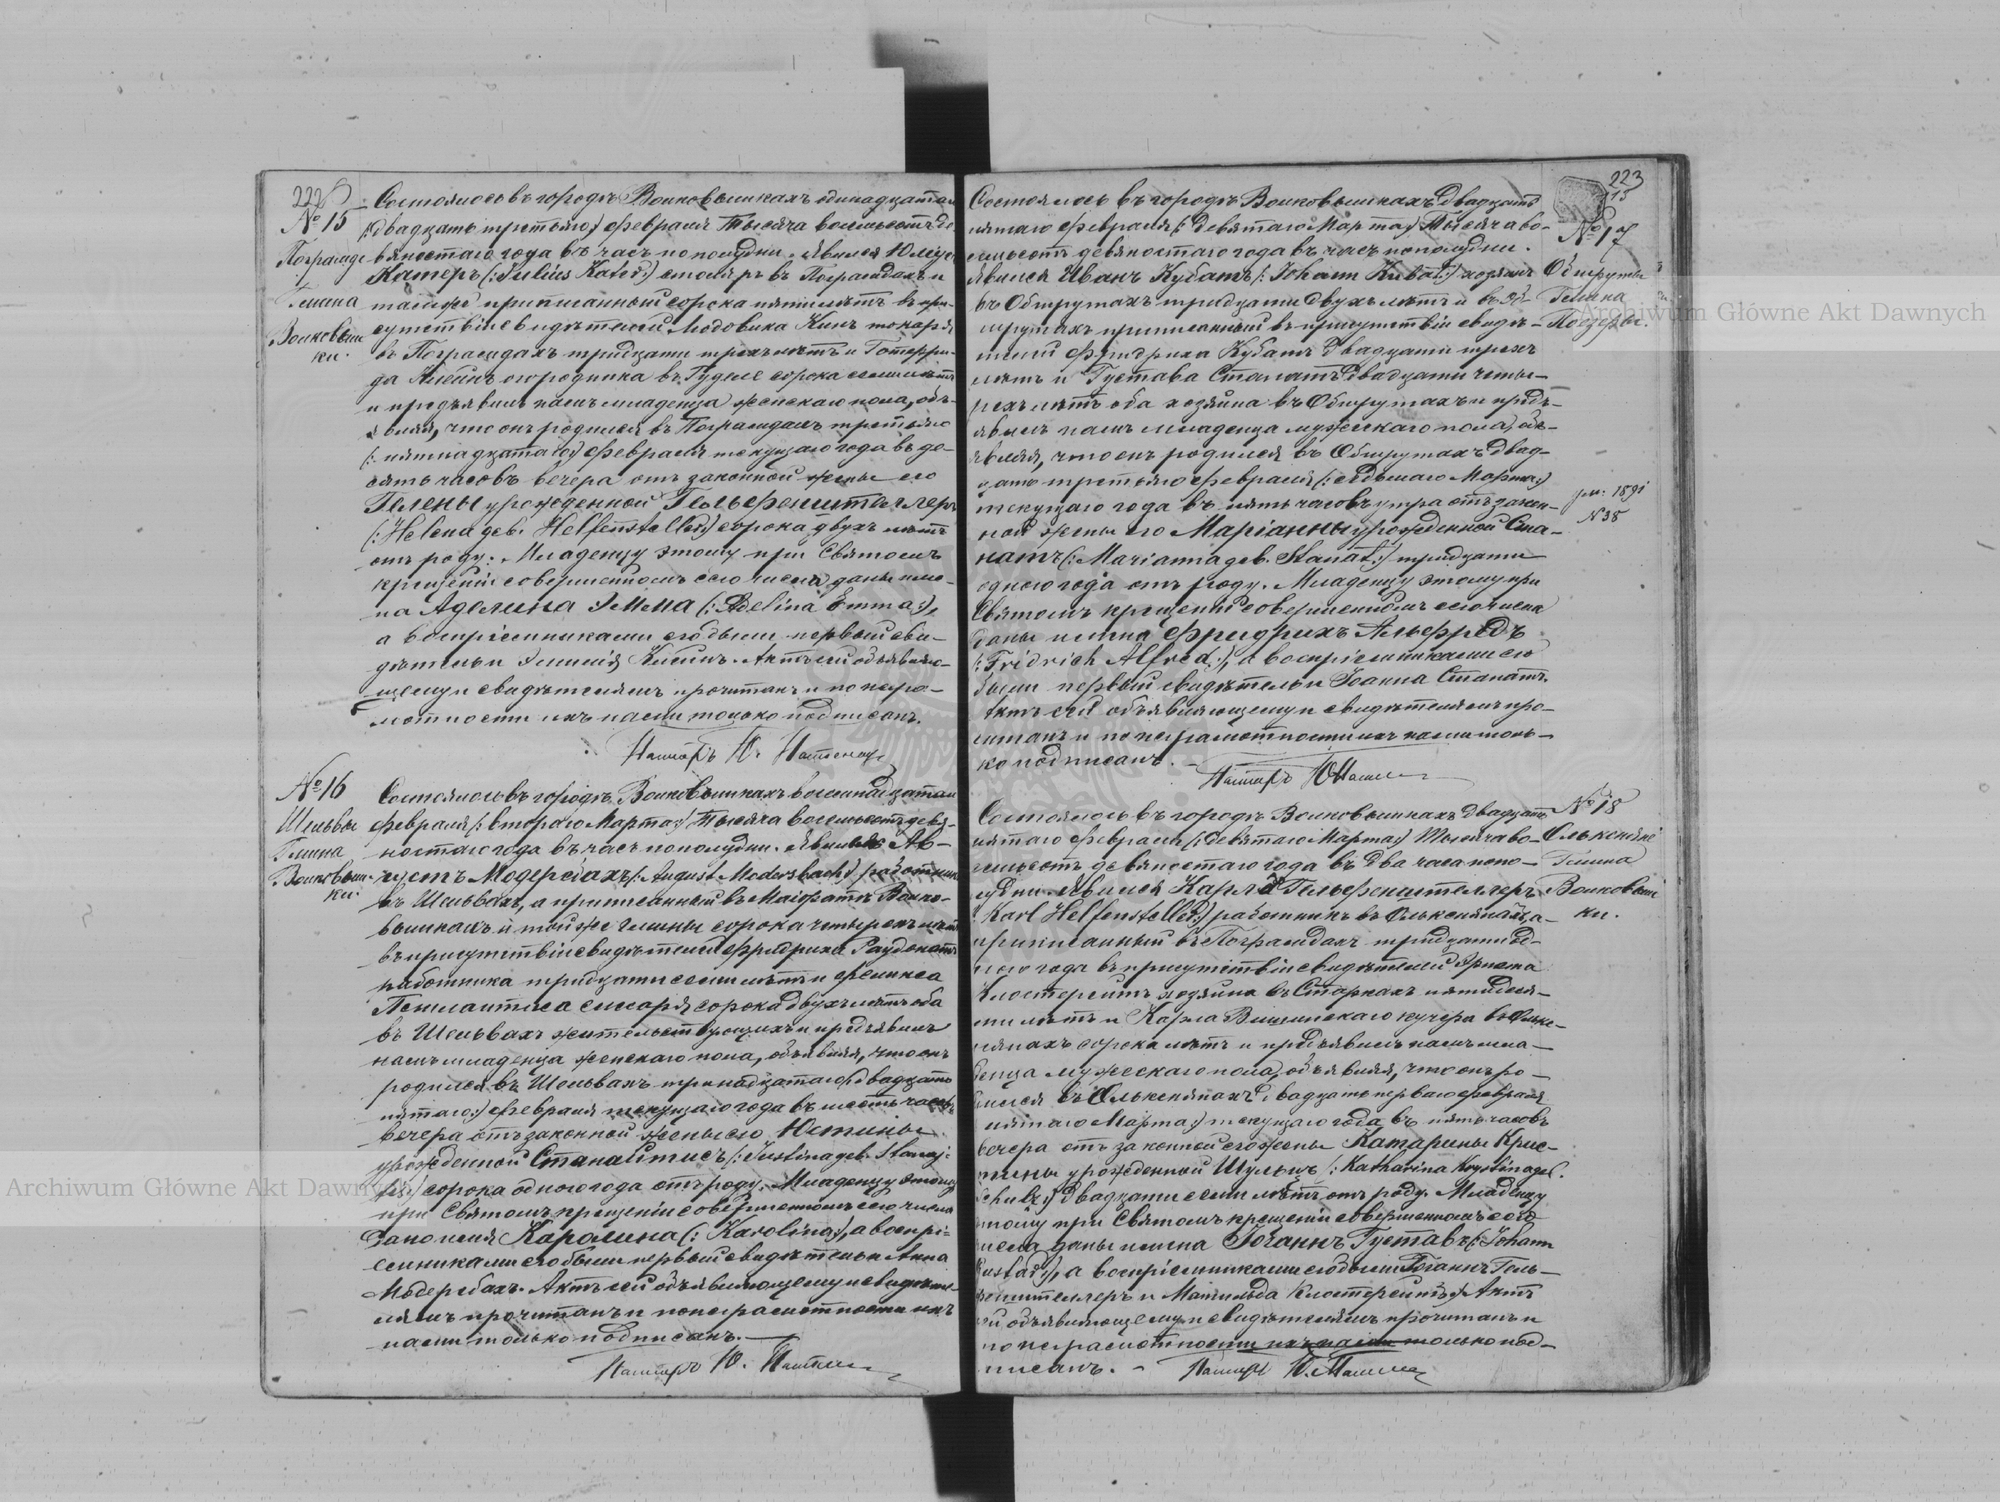 222
№ 15
Пограмде
Гмина
Волковыш
ки.
Состоялось въ городѣ Волковышкахъ одинадцатаго
(: двадцать третьяго:) февраля тысяча восемьсотъ де-
вяностаго года въ часъ по полудни. Явился Юлiусъ
Катеръ (: Julius Kater:) столяръ въ Пограмдахъ и
тамъ же приписанный сорока пяти лѣтъ въ при-
сутствiи свидѣтелей Людовика Кинъ токаря
въ Пограмдахъ тридцати трехъ лѣтъ и Готфри-
да огородника въ Гуделе сорока семи лѣтъ
и предъявилъ намъ младенца женскаго пола, объ-
являя, что онъ родился въ Пограмдахъ третьяго
(: пятнадцатаго:) февраля текущаго года въ де-
вять часовъ вечера отъ законной жены его
Гелены урожденной Гельфенштеллеръ
(: Helena geb. Helfensteller:) сорока двухъ лѣтъ
отъ роду. Младенцу этому при Святомъ
крещенiи совершенномъ сего числа даны име-
на Аделина Эмма (: Adelina Emma:),
а воспрiемниками его были первый сви-
дѣтель и Эмилiя Актъ сей объявляю-
щему и свидѣтелямъ прочитанъ и по негра-
мотности ихъ нами только подписанъ.
Пасторъ Ю.
№ 16
Шельвы
Гмина
Волковыш-
ки
Состоялось въ городѣ Волковышкахъ восемнадцатаго
февраля (: втораго Марта:) тысяча восемьсотъ девя-
ностаго года въ часъ по полудни. Явился Ав-
густъ Модерсбахъ (: August Modersbach:) работникъ
въ Шельвахъ, а приписанный въ Волко-
вышкахъ и той же гмины сорока четырехъ лѣтъ
въ присутствiи свидѣтелей Фридриха Раудонатъ
работника тридцати семи лѣтъ и Феликса
слесаря сорока двухъ лѣтъ оба
въ Шельвахъ жительствующихъ и предъявилъ
намъ младенца женскаго пола, объявляя, что онъ
родился въ Шельвахъ тринадцатаго (: двадцать
пятаго:) февраля текущаго года въ шесть часовъ
вечера отъ законной жены его Юстины
урожденной Станайтисъ (: Justina geb. Stanaj-
tis:) сорока одного года отъ роду. Младенцу этому
при Святомъ крещенiи совершенномъ сего числа
дано имя Каролина (: Karolina:), а воспрi-
емниками его были первый свидѣтель и Анна
Модерсбахъ. Актъ сей объявляющему и свидѣте-
лямъ прочитанъ и по неграмотности ихъ
нами только подписанъ.
Пасторъ Ю.
223
15
№ 17
Обшруты
Гмина
Поезеры.
Состоялось въ городѣ Волковышкахъ двадцать
пятаго февраля (: девятаго Марта:) тысяча во-
семьсотъ девяностаго года въ часъ по полудни.
Явился Иванъ Кубатъ (: Johann Kubat:) хозяинъ
въ Обшрутахъ тридцати двухъ лѣтъ и въ Об-
шрутахъ приписанный въ присутствiи свидѣ-
телей Фридриха Кубатъ двадцати трехъ
лѣтъ и Густава Станатъ двадцати четы-
рехъ лѣтъ оба хозяина въ Обшрутахъ и предъ-
явилъ намъ младенца мужескаго пола, объ-
являя, что онъ родился въ Обшрутахъ двад-
цать третьяго февраля (: седьмаго Марта:)
текущаго года въ пять часовъ утра отъ закон-
ной жены его Марiанны урожденной Ста-
натъ (: Marianna geb. Stanat:) тридцати
одного года отъ роду. Младенцу этому при
Святомъ крещенiи совершенномъ сего числа
даны имена Фридрихъ Альфредъ
(: Fridrich Alfred:), а воспрiемниками его
были первый свидѣтель и Iоанна Станатъ.
Актъ сей объявляющему и свидѣтелямъ про-
читанъ и по неграмотности ихъ нами толь-
ко подписанъ.
Пасторъ Ю.
ум: 1891
N 38
№ 18
Олькснянi
Гмина
Волковыш
ки.
Состоялось въ городѣ Волковышкахъ двадцать
пятаго февраля (: девятаго Марта:) тысяча во-
семьсотъ девяностаго года въ два часа попо-
лудни. Явился Карлъ Гельфенштеллеръ
(: Karl Helfensteller:) работникъ въ Олькснянахъ, а
приписанный въ Пограмдахъ тридцати од-
ного года въ присутствiи свидѣтелей Эрнста
Клостерейтъ хозяина въ Старкахъ пятидеся-
ти лѣтъ и Карла Вишинскаго кучера въ Ольк-
снянахъ сорока лѣтъ и предъявилъ намъ мла-
денца мужескаго пола, объявляя, что онъ ро-
дился въ Олькснянахъ двадцать перваго февраля
(: пятаго Марта:) текущаго года въ пять часовъ
вечера отъ законной его жены Катарины Крис-
тины урожденной Шульцъ (: Katharina Krystina geb.
Schulz:) двадцати семи лѣтъ отъ роду. Младенцу
этому при Святомъ крещенiи совершенномъ сего
числа даны имена Iоганнъ Густавъ (: Johann
Gustav:), а воспрiемниками его были Iоганнъ Гель-
фенштеллеръ и Матильда Клостерейтъ. Актъ
сей объявляющему и свидѣтелямъ прочитанъ и
по неграмотности ихъ нами только под-
писанъ.
Пасторъ Ю.
Archiwum Główne Akt Dawnych
Archiwum Główne Akt Dawnych